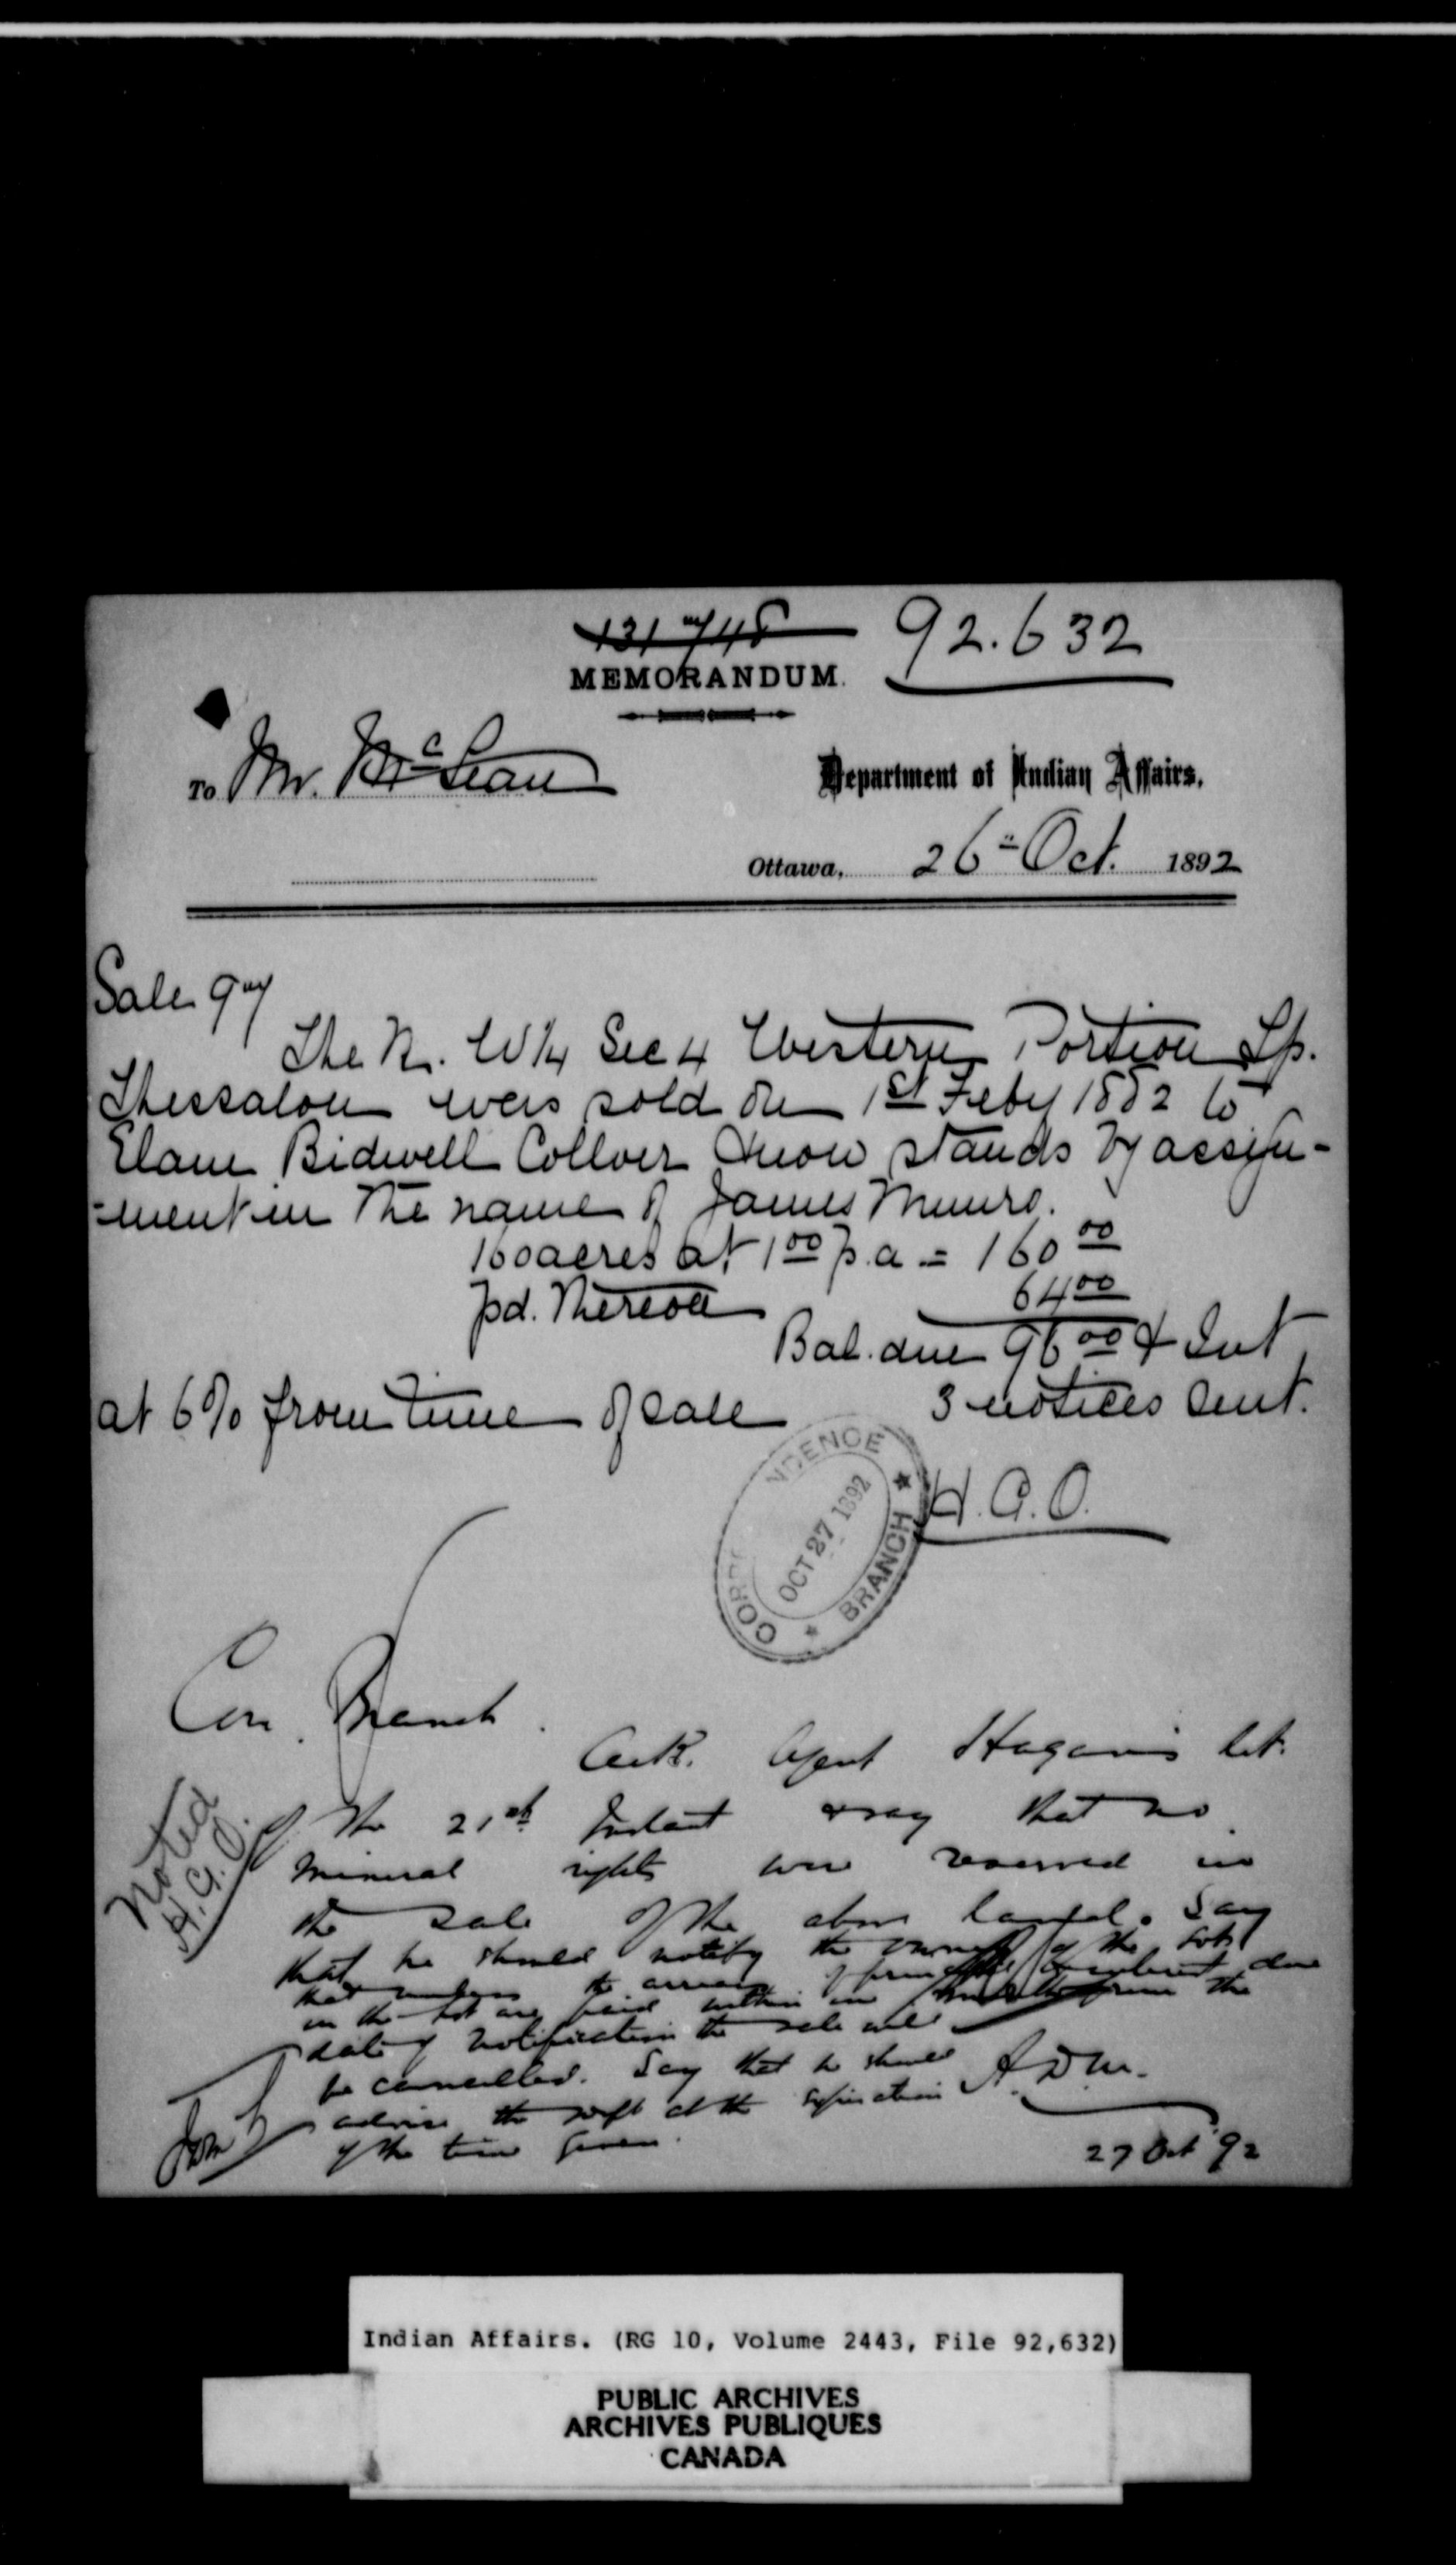 92.632
MEMORANDUM.
To Mr. McLean
Department of Indian Affairs.
Ottawa, 26" Oct. 1892
Sale 97
The N. W ¼ Sec 4 Western Portion Tp.
Thessalon was sold on 1st Feby 1882 to
Elam Bidwell Collver & now stands by assign-
-ment in the name of James Munro.
160 acres at 1 00 p. a = 160 00
pd. Thereon 64 00
Bal. due 96 00 & Int
at 6% from time of sale 3 notices sent.
H. G. O.
CORRE NDENCE BRANCH
OCT 27 1892
Corr. Branch.
Ack. Agent Hagan's let.
of the 21st Instant & say that no
mineral rights were reserved in
the sale of the above land. Say
that he should notify the owner of the lot
that unless the arrears of principal & interest due
on the lot are paid within from the
date of notification the sale will
be cancelled. Say that he should
advise the Dept at the expiration
of the time given.
Noted
H. G. O.
27 Oct '92
Indian Affairs. (RG 10, Volume 2443, File 92,632)
PUBLIC ARCHIVES
ARCHIVES PUBLIQUES
CANADA